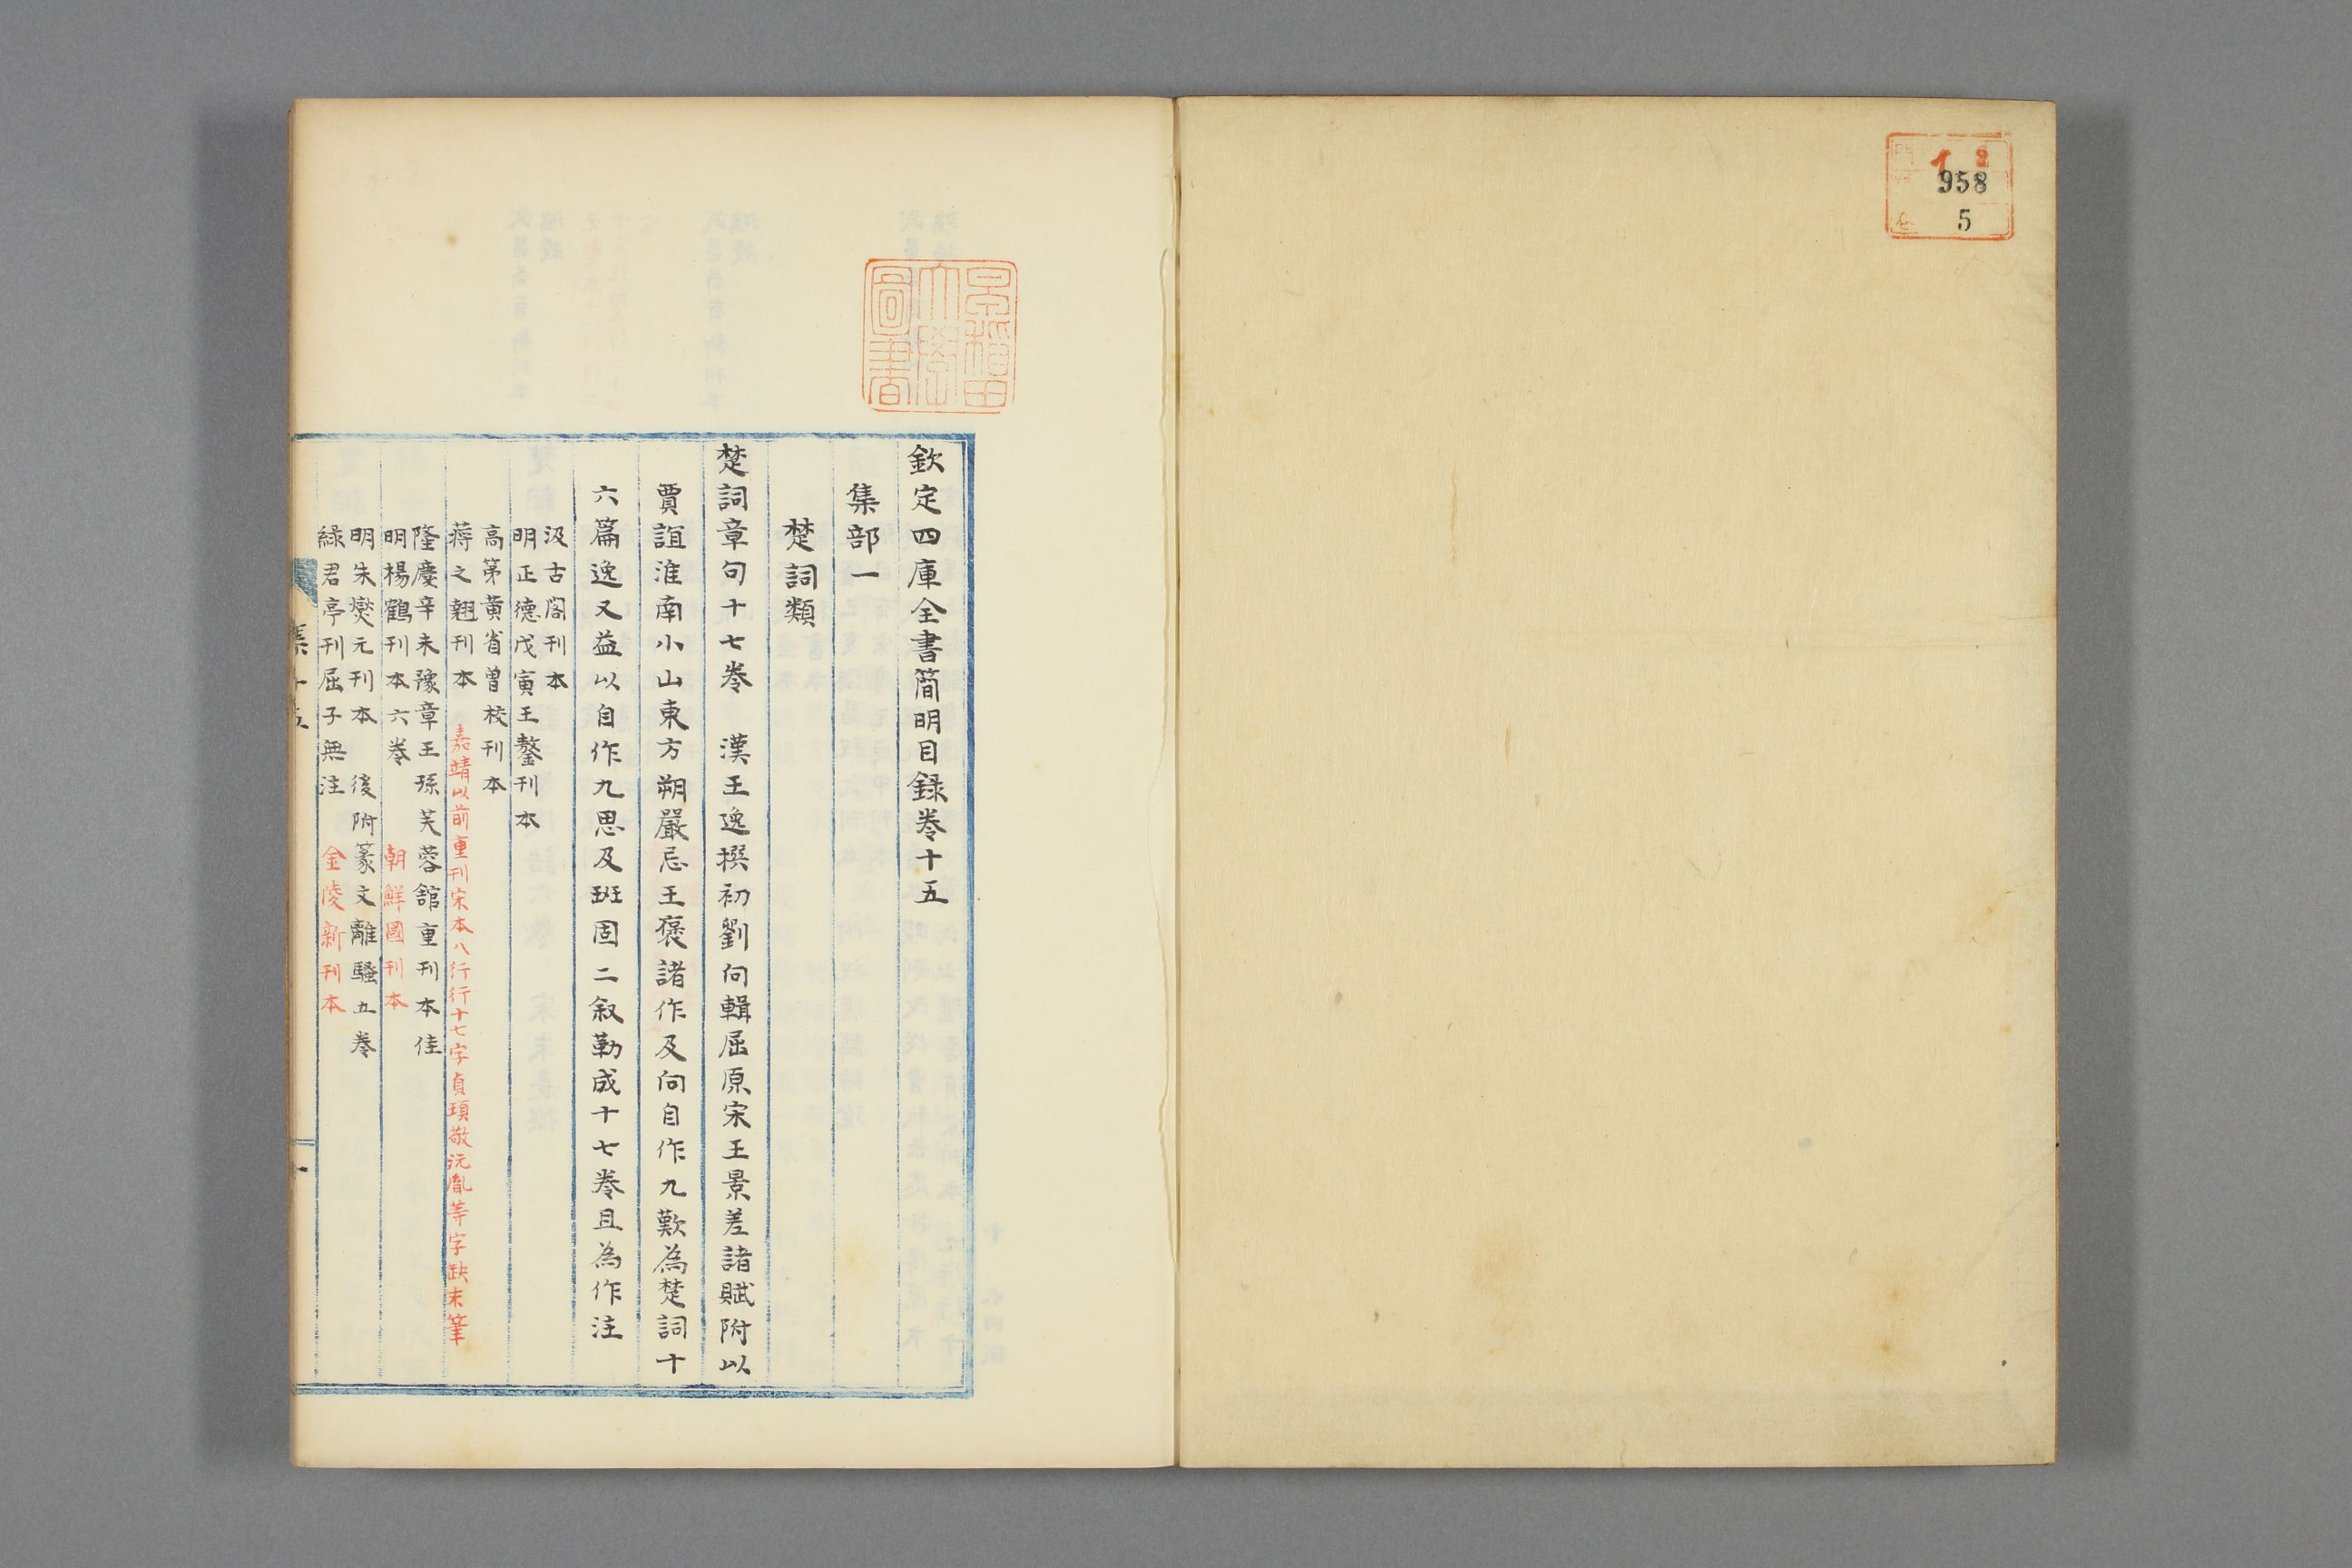 958
5
早稲田
大學
圖書
欽定四庫全書簡明目録卷十五
集部一
楚詞類
楚詞章句十七卷 漢王逸撰初劉向輯屈原宋玉景差諸賦附以
賈誼淮南小山東方朔嚴忌王褒諸作及向自作九歎為楚詞十
六篇逸又益以自作九思及班固二叙勒成十七卷且為作注
汲古閣刊本
明正德戊寅王鏊刊本
高第黄省曽校刊本
蒋之翹刊本 嘉靖以前重刊宋本八行行十七字貞頊敬沅胤等字缺末筆
隆慶辛未豫章王孫芙蓉舘重刊本佳
明楊鶴刊本六卷 朝鮮國刊本
明朱燮元刊本 後附篆文離騷五卷
緑君亭刊屈子無注 金陵新刊本
集十五
一